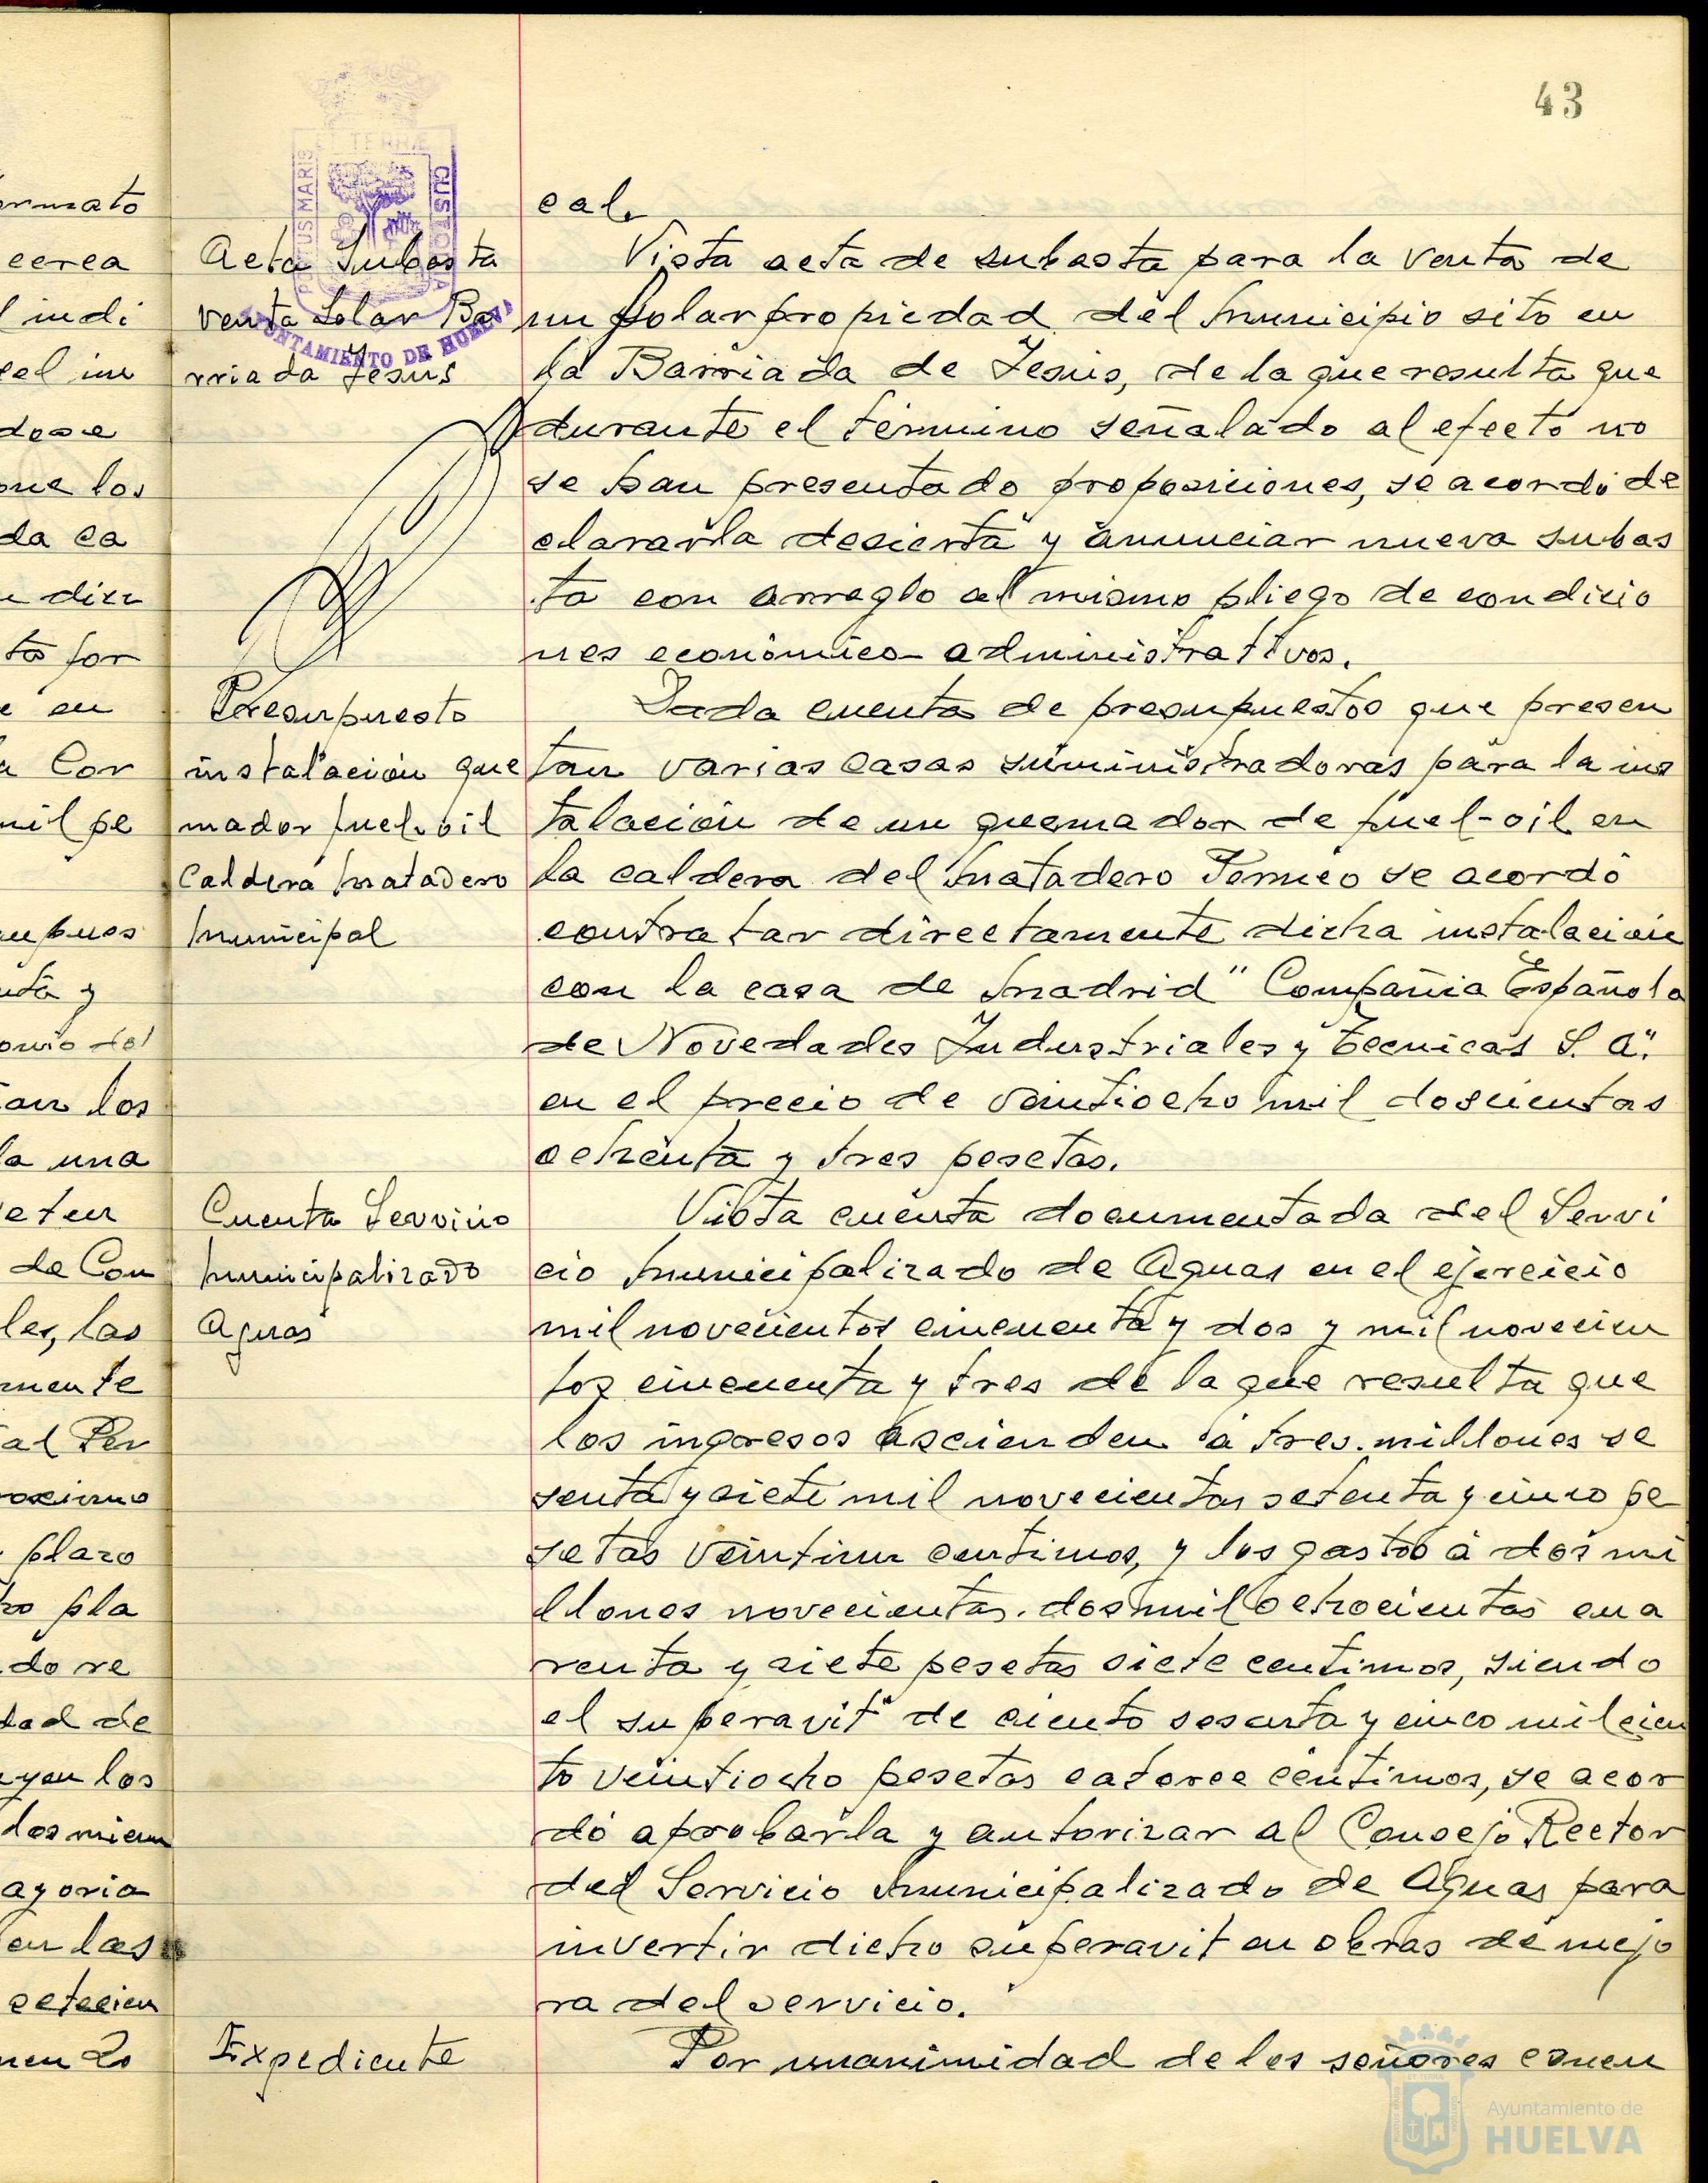 43
cal.
Acta Subasta
venta Solar Ba
rriada Jesús
Vista acta de subasta para la venta de
un Solar propiedad del Municipio sito en
la Barriada de Jesús, de la que resulta que
durante el término señalado al efecto no
se han presentado proposiciones, se acordó de
clararla desierta y anunciar nueva subas
ta con arreglo al mismo pliego de condicio
nes económico-administrativos.
Presupuesto
instalación que
mador fuel-oil
Caldera Matadero
Municipal
Dada cuenta de presupuestos que presen
tan varias casas suministradoras para la ins
talación de un quemador de fuel-oil en
la caldera del Matadero Térmico se acordó
contratar directamente dicha instalación
con la casa de Madrid "Compañia Española
de Novedades Industriales y Tecnicas S. A".
en el precio de veintiocho mil doscientas
ochenta y tres pesetas.
Cuenta Servicio
Municipalizado
Aguas
Vista cuenta documentada del Servi
cio Municipalizado de Aguas en el ejercicio
mil novecientos cincuenta y dos y mil novecien
tos cincuenta y tres de la que resulta que
los ingresos ascienden a tres millones se
senta y siete mil novecientas setenta y cinco pe
setas veintiun centimos, y los gastos a dos mi
llones novecientas dos mil ochocientas cua
renta y siete pesetas siete centimos, siendo
el superavit de ciento sesenta y cinco mil cien
to veintiocho pesetas catorce centimos, se acor
dó aprobarla y autorizar al Consejo Rector
del Servicio Municipalizado de Aguas para
invertir dicho superavit en obras de mejo
ra del servicio.
Expediente
Por unanimidad de los señores concu
PORTUS MARIS ET TERRAE CUSTODIA
AYUNTAMIENTO DE HUELVA
Ayuntamiento de
HUELVA
cerea
l indi
que los
da ca
to for
e en
a Cor
mil pe
an los
la una
de Con
les, las
mente
al Per
plazo
do re
dad de
yen los
ayoria
en las
setecien